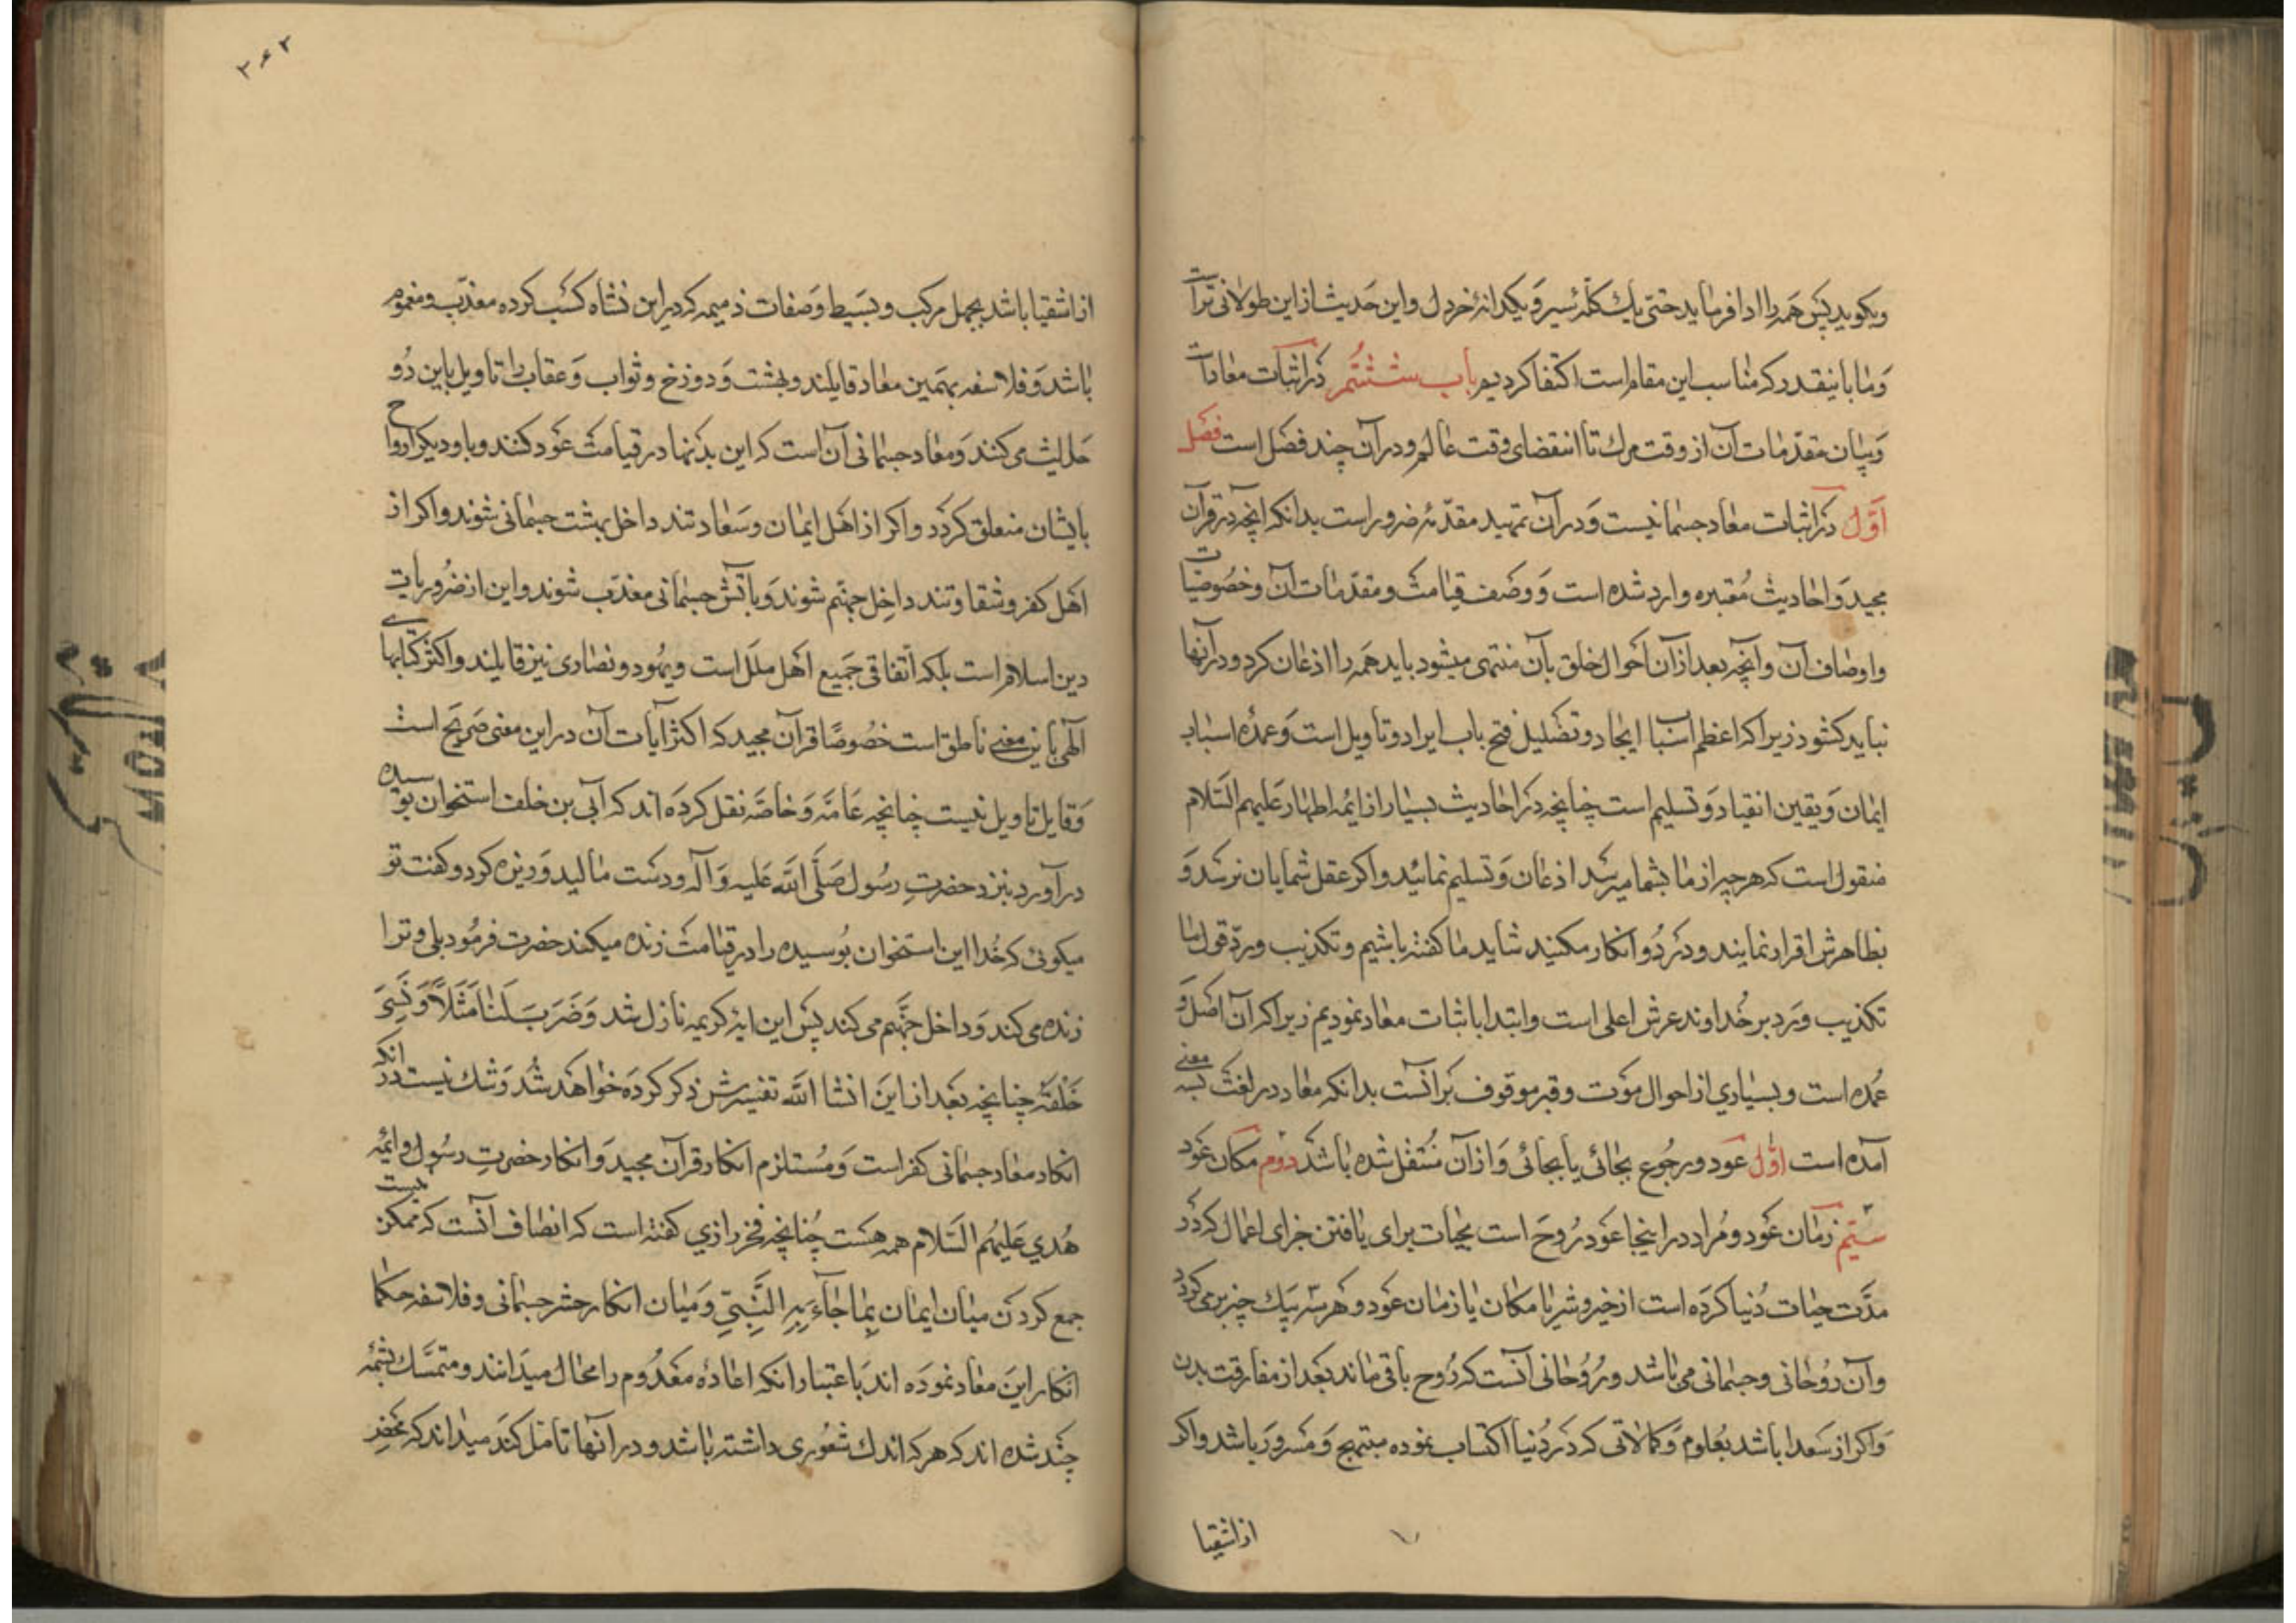 و بکوید پس همه را ادا فرماید حتی یك کله سیر و یکدانه خردل و این حدیث از این طولانی تر است
و ما باینقدر که مناسب این مقام است اکتفا کردیم باب ششم در اثبات معاد است
و بیان مقدمات آن از وقت مرك تا انقضای وقت عالم و در آن چند فصل است فصل
اول در اثبات معاد جسمانیست و در آن تمهید مقدمه ضرور است بدانکه آنچه در قرآن
مجید و احادیث معتبره وارد شده است و وصف قیامت و مقدمات آن و خصوصیات
و اوصاف آن و آنچه بعد از آن احوال خلق بآن منتهی میشود باید همه را اذعان کرد و در آنها
نباید کشود زیرا که اعظم اسباب ایجاد و تضلیل فتح باب ایراد و تاویل است و عمده اسباب
ایمان و یقین انقیاد و تسلیم است چنانچه در احادیث بسیار از ایمه اطهار علیهم السلام
منقول است که هر چیز از ما بشما میرسد اذعان و تسلیم نمائید و اکر عقل شما بآن نرسد و
بظاهرش اقرار نمایند و در رد و انکار مکنید شاید ما کفته باشیم و تکذیب و رد قول ما
تکذیب و رد بر خداوند عرش اعلی است و ابتدا باثبات معاد نمودیم زیرا که آن اصل و
عمده است و بسیاری از احوال موت و قبر موقوف بر آنست بدانکه معاد در لغت بسه معنی
آمده است اول عود و رجوع بجائی یا بجائی و از آن منتقل شده باشد دوم مکان عود
سیم زمان عود و مراد در اینجا عود روح است بحیات برای یافتن جزای اعمال که در
مدت حیات دنیا کرده است از خیر و شر یا مکان یا زمان عود و هر سه بیك چیز برمیکردد
و آن روحانی و جسمانی می باشد و روحانی آنست که روح باقی ماند بعد از مفارقت بدن
و اکر از سعدا باشد بعلوم و کمالاتی که در دنیا اکتساب نموده مبتهج و مسرور باشد و اکر
از اشقیا
۲۶۲
از اشقیا باشد بجهل مرکب و بسیط و صفات ذمیمه که در این نشاه کسب کرده معذب و مغموم
باشد و فلاسفه بهمین معاد قایلند و بهشت و دوزخ و ثواب و عقاب را تاویل باین دو
حالت می کنند و معاد جسمانی آن است که این بدنها در قیامت عود کنند و بار دیکر ارواح
بایشان متعلق کردد و اکر از اهل ایمان و سعادتند داخل بهشت جسمانی شوند و اکر از
اهل کفر و شقاوتند داخل جهنم شوند و بآتش جسمانی معذب شوند و این از ضروریات
دین اسلام است بلکه اتفاقی جمیع اهل ملل است و یهود و نصاری نیز قایلند و اکثر کتابهای
الهی باین معنی ناطق است خصوصا قرآن مجید که اکثر آیات آن در این معنی صریح است
و قایل تاویل نیست چنانچه عامه و خاصه نقل کرده اند که ابی بن خلف استخوان پوسیده
در آورد بنزد حضرت رسول صلی الله علیه و آله و دست مالید و ریزه کرد و کفت تو
میکوئی که خدا این استخوان بوسیده را در قیامت زنده میکند حضرت فرمود بلی و ترا
زنده می کند و داخل جهنم می کند پس این ایه کریمه نازل شد وَضَرَبَ لَنا مَثَلاً وَنَسِیَ
خَلْقَهُ چنانچه بعد از این انشا الله تفسیرش ذکر کرده خواهد شد و شك نیست در آنکه
انکار معاد جسمانی کفر است و مستلزم انکار قرآن مجید و انکار حضرت رسول و ایمه
هدی علیهم السلام همه هست چنانچه فخر رازی کفته است که انصاف آنست که ممکن نیست
جمع کردن میان ایمان بِما جاءَ بِهِ النَّبِیّ و میان انکار حشر جسمانی و فلاسفه حکما
انکار این معاد نموده اند باعتبار انکه اعاده معدوم را محال میدانند و متمسك بشبهه
چند شده اند که هر که اندك شعوری داشته باشد و در آنها تامل کند میداند که محض